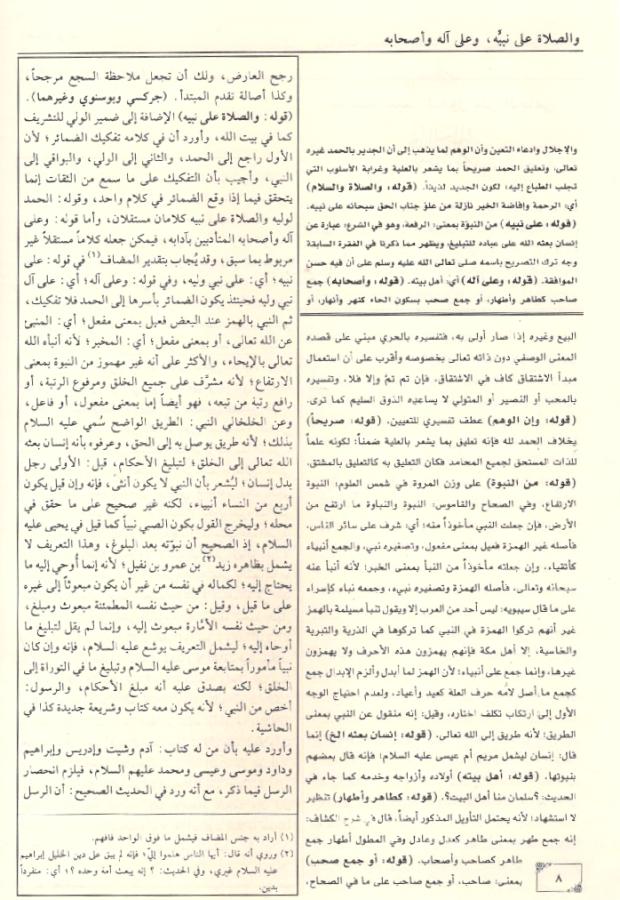 والصلاة على نبيه، وعلى آله وأصحابه
والإجلال وادعاء التعين وأن الوهم لما يذهب إلى أن الجدير بالحمد غيره
تعالى، وتعليق الحمد صريحاً بما يشعر بالعلية وغرابة الأسلوب التي
تجلب الطباع إليه؛ لكون الجديد لذيذاً. (قوله: والصلاة والسلام)
أي: الرحمة وإفاضة الخير نازلة من علو جناب الحق سبحانه على نبيه.
(قوله: على نبيه) من النبوة بمعنى: الرفعة، وهو في الشرع: عبارة عن
إنسان بعثه الله على عباده للتبليغ، ويظهر مما ذكرنا في الفقرة السابقة
وجه ترك التصريح باسمه صلى تعالى الله عليه وسلم على أن فيه حسن
الموافقة. (قوله: وعلى آله) أي: أهل بيته. (قوله: وأصحابه) جمع
صاحب كطاهر وأطهار، أو جمع صحب بسكون الحاء كنهر وأنهار، أو
البيع وغيره إذا صار أولى به، فتفسيره بالحري مبني على قصده
المعنى الوصفي دون ذاته تعالى بخصوصه وأقرب على أن استعمال
مبدأ الاشتقاق كاف في الاشتقاق، فإن تم تم وإلا فلا، وتفسيره
بالمحب أو النصير أو المتولي لا يساعده الذوق السليم كما ترى.
(قوله: وإن الوهم) عطف تفسيري للتعيين. (قوله: صريحاً)
بخلاف الحمد لله فإنه تعليق بما يشعر بالعلية ضمناً؛ لكونه علماً
للذات المستحق لجميع المحامد فكان التعليق به كالتعليق بالمشتق.
(قوله: من النبوة) على وزن المروة في شمس العلوم: النبوة
الارتفاع، وفي الصحاح والقاموس: النبوة والنباوة ما ارتفع من
الأرض، فإن جعلت النبي مأخوذاً منه؛ أي: شرف على سائر الناس،
فأصله غير الهمزة فعيل بمعنى مفعول، وتصغيره نبي، والجمع أنبياء
كأتقياء، وإن جعلته مأخوذاً من النبأ بمعنى الخبر؛ لأنه أنبأ عنه
سبحانه وتعالى، فأصله الهمزة وتصغيره نبيء، وجمعه نباء كإسراء
على ما قال سيبويه: ليس أحد من العرب إلا ويقول تنبأ مسيلمة بالهمز
غير أنهم تركوا الهمزة في النبي كما تركوها في الذرية والتبرية
والخاسية، إلا أهل مكة فإنهم يهمزون هذه الأحرف ولا يهمزون
غيرها، وإنما جمع على أنبياء؛ لأن الهمز لما أبدل وألزم الإبدال جمع
كجمع ما أصل لامه حرف العلة كعيد وأعياد، ولعدم احتياج الوجه
الأول إلى ارتكاب تكلف اختاره، وقيل: إنه منقول عن النبي بمعنى
الطريق؛ لأنه طريق إلى الله تعالى. (قوله: إنسان بعثه الخ) إنما
قال: إنسان ليشمل مريم أم عيسى عليه السلام؛ فإنه قال بعضهم
بنبوتها. (قوله: أهل بيته) أولاده وأزواجه وخدمه كما جاء في
الحديث: «سلمان منا أهل البيت». (قوله: كطاهر وأطهار) تنظير
لا استشهاد؛ لأنه يحتمل التأويل المذكور أيضاً، قال في شرح الكشاف:
إنه جمع طهر بمعنى طاهر كعدل وعادل وفي المطول أطهار جمع
طاهر كصاحب وأصحاب. (قوله: أو جمع صحب)
بمعنى: صاحب، أو جمع صاحب على ما في الصحاح،
٨
رجح العارض، ولك أن تجعل ملاحظة السجع مرجحاً،
وكذا أصالة تقدم المبتدأ. (جركسي وبوسنوي وغيرهما).
(قوله: والصلاة على نبيه) الإضافة إلى ضمير الولي للتشريف
كما في بيت الله، وأورد أن في كلامه تفكيك الضمائر؛ لأن
الأول راجع إلى الحمد، والثاني إلى الولي، والبواقي إلى
النبي، وأجيب بأن التفكيك على ما سمع من الثقات إنما
يتحقق فيما إذا وقع الضمائر في كلام واحد، وقوله: الحمد
لوليه والصلاة على نبيه كلامان مستقلان، وأما قوله: وعلى
آله وأصحابه المتأدبين بآدابه، فيمكن جعله كلاماً مستقلاً غير
مربوط بما سبق، وقد يُجاب بتقدير المضاف(١) في قوله: على
نبيه؛ أي: على نبي وليه، وفي قوله: وعلى آله؛ أي: على آل
نبي وليه فحينئذ يكون الضمائر بأسرها إلى الحمد فلا تفكيك،
ثم النبي بالهمز عند البعض فعيل بمعنى مفعل؛ أي: المنبئ
عن الله تعالى، أو بمعنى مفعل؛ أي: المخبر؛ لأنه أنبأه الله
تعالى بالإيحاء، والأكثر على أنه غير مهموز من النبوة بمعنى
الارتفاع؛ لأنه مشرَّف على جميع الخلق ومرفوع الرتبة، أو
رافع رتبة من تبعه، فهو أيضاً إما بمعنى مفعول، أو فاعل،
وعن الخلخالي النبي: الطريق الواضح سُمي عليه السلام
بذلك؛ لأنه طريق يوصل به إلى الحق، وعرفوه بأنه إنسان بعثه
الله تعالى إلى الخلق؛ لتبليغ الأحكام، قيل: الأولى رجل
بدل إنسان؛ ليُشعر بأن النبي لا يكون أنثى، فإنه وإن قيل يكون
أربع من النساء أنبياء، لكنه غير صحيح على ما حقق في
محله؛ وليخرج القول بكون الصبي نبياً كما قيل في يحيى عليه
السلام، إذ الصحيح أن نبوّته بعد البلوغ، وهذا التعريف لا
يشمل بظاهره زيد(٢) بن عمرو بن نفيل؛ لأنه إنما أُوحي إليه ما
يحتاج إليه؛ لكماله في نفسه من غير أن يكون مبعوثاً إلى غيره
على ما قيل، وقيل: من حيث نفسه المطمئنة مبعوث ومبلغ،
ومن حيث نفسه الأمّارة مبعوث إليه، وإنما لم يقل لتبليغ ما
أوحاه إليه؛ ليشمل التعريف يوشع عليه السلام، فإنه وإن كان
نبياً مأموراً بمتابعة موسى عليه السلام وتبليغ ما في التوراة إلى
الخلق؛ لكنه يصدق عليه أنه مبلغ الأحكام، والرسول:
أخص من النبي؛ لأنه يكون معه كتاب وشريعة جديدة كذا في
الحاشية.
وأورد عليه بأن من له كتاب: آدم وشيت وإدريس وإبراهيم
وداود وموسى وعيسى ومحمد عليهم السلام، فيلزم انحصار
الرسل فيما ذكر، مع أنه ورد في الحديث الصحيح: أن الرسل
(١) أراد به جنس المضاف فيشمل ما فوق الواحد فافهم.
(٢) وروي أنه قال: أيها الناس هلموا إليّ؛ فإنه لم يبق على دين الخليل إبراهيم
عليه السلام غيري، وفي الحديث: ؟ إنه يبعث أمة وحده ؟؛ أي: منفرداً
بدين.